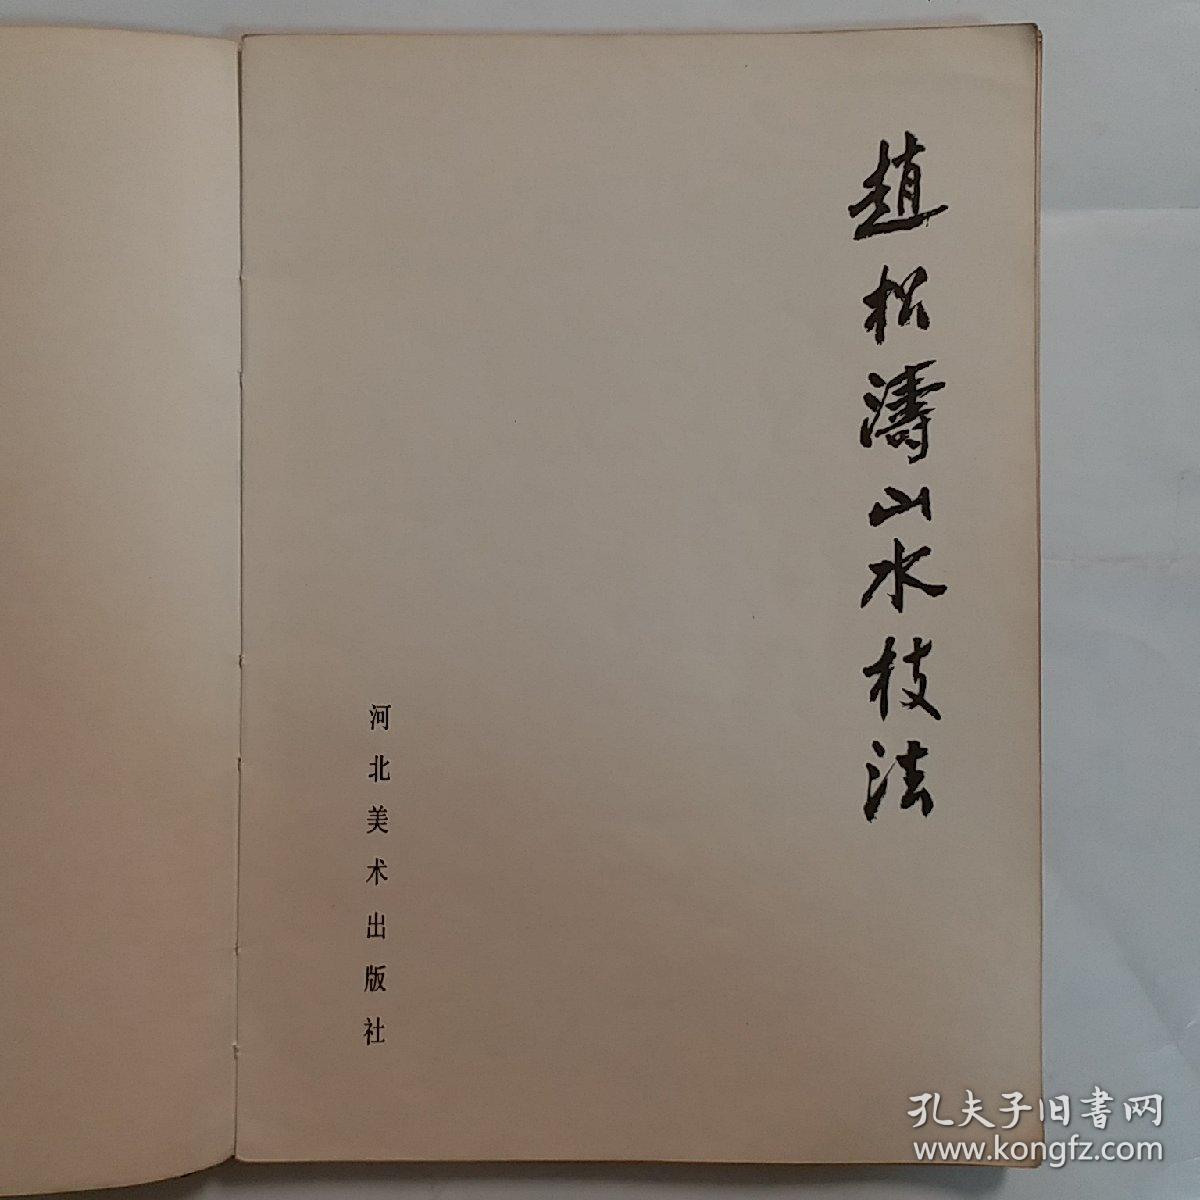 趙松濤山水枝法
河北美术出版社
孔夫子旧書网
www.kongfz.com